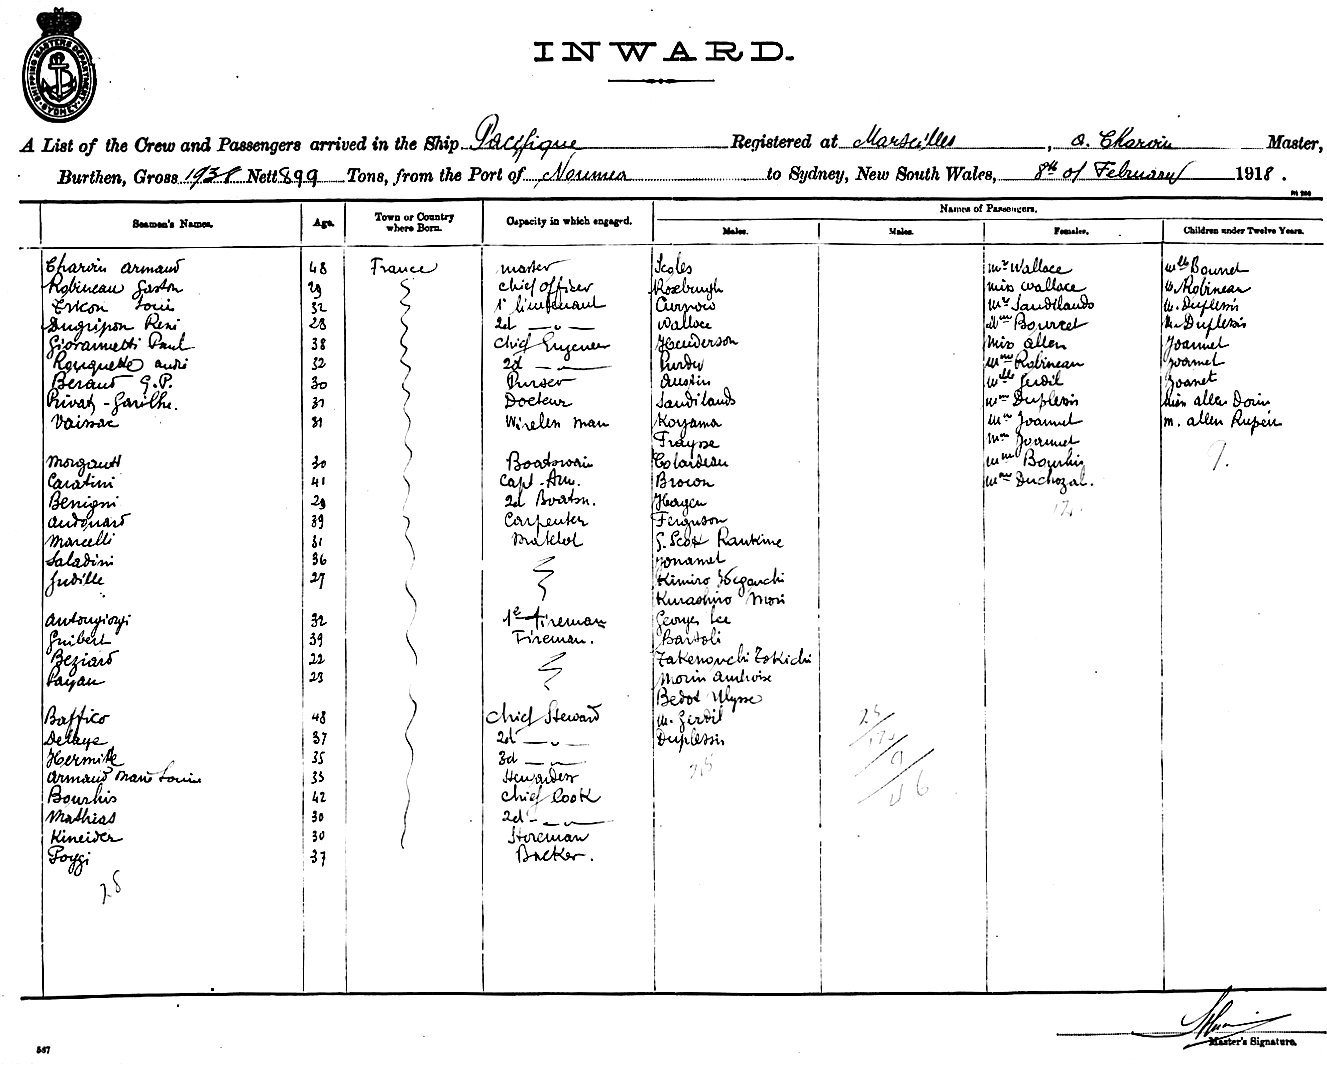 SHIPPING MASTERS DEPARTMENT SYDNEY
INWARD.
A List of the Crew and Passengers arrived in the Ship Pacifique Registered at Marseilles, A. Charvin Master,
Burthen, Gross 1938 Nett 899 Tons, from the Port of Noumea to Sydney, New South Wales, 8th of February 1918.
Seamen's Names. Age. Town or Country where Born. Capacity in which engaged. Names of Passengers.
Males. Males. Females. Children under Twelve Years.
Charvin Armand 48 France master Scoles Mrs Wallace Mlle Bourret
Robineau Gaston 29 Chief Officer Roseburgh Miss Wallace M. Robineau
Ericon Louis 32 1r Lieutenant Curnow Mrs Sandilands M. Duplessis
Dugripon René 28 2d — " — Wallace Mme Bourret M. Duplessis
Giorametti Paul 38 Chief Engeneer Henderson Miss Allen Joannet
Rouquette André 32 2d — " — Purdie Mme Robineau Joannet
Beraud G.P. 30 Purser Austin Mlle Gerdil Joanet
Privat-Garilhe. 31 Docteur Sandilands Mme Duplessis Miss Allen Doria
Vaissac 31 Wireless man Koyama Mme Joannet M. Allen Rupen
Fraysse Mme Joannet 9.
Morganti 30 Boatswain Colardeau Mme Bourhis
Caratini 41 Capt. Arm. Brown Mme Duchozal.
Benigni 29 2d Boatsn. Hagen 12
Audouard 39 Carpenter Ferguson
Marcelli 31 Matelot G. Scott Rankine
Saladini 36 Jouannet
Judille 27 Kimiro Higauchi
Kurashiro Mori
Antongiorgi 32 1e Fireman Georges Lee
Guibert 39 Fireman. Bartoli
Beziard 22 Takenouchi Tokichi
Payan 23 Morin Ambroise
Bedos Ulysse
Baffico 48 Chief Steward M. Gerdil 25
Delaye 37 2d — " — Duplessis 12
Hermitte 35 3d — " — 25 9
Armand Marie Louise 33 Stewardess 46
Bourhis 42 Chief Cook
Mathias 30 2d — " —
Kineider 30 Storeman
Poggi 37 Backer.
28
Master's Signature.
567